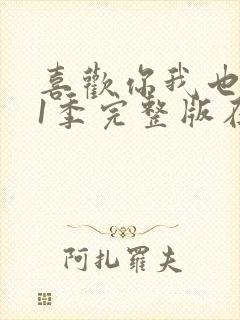 喜歡你我也
1季完整版在
阿扎羅夫